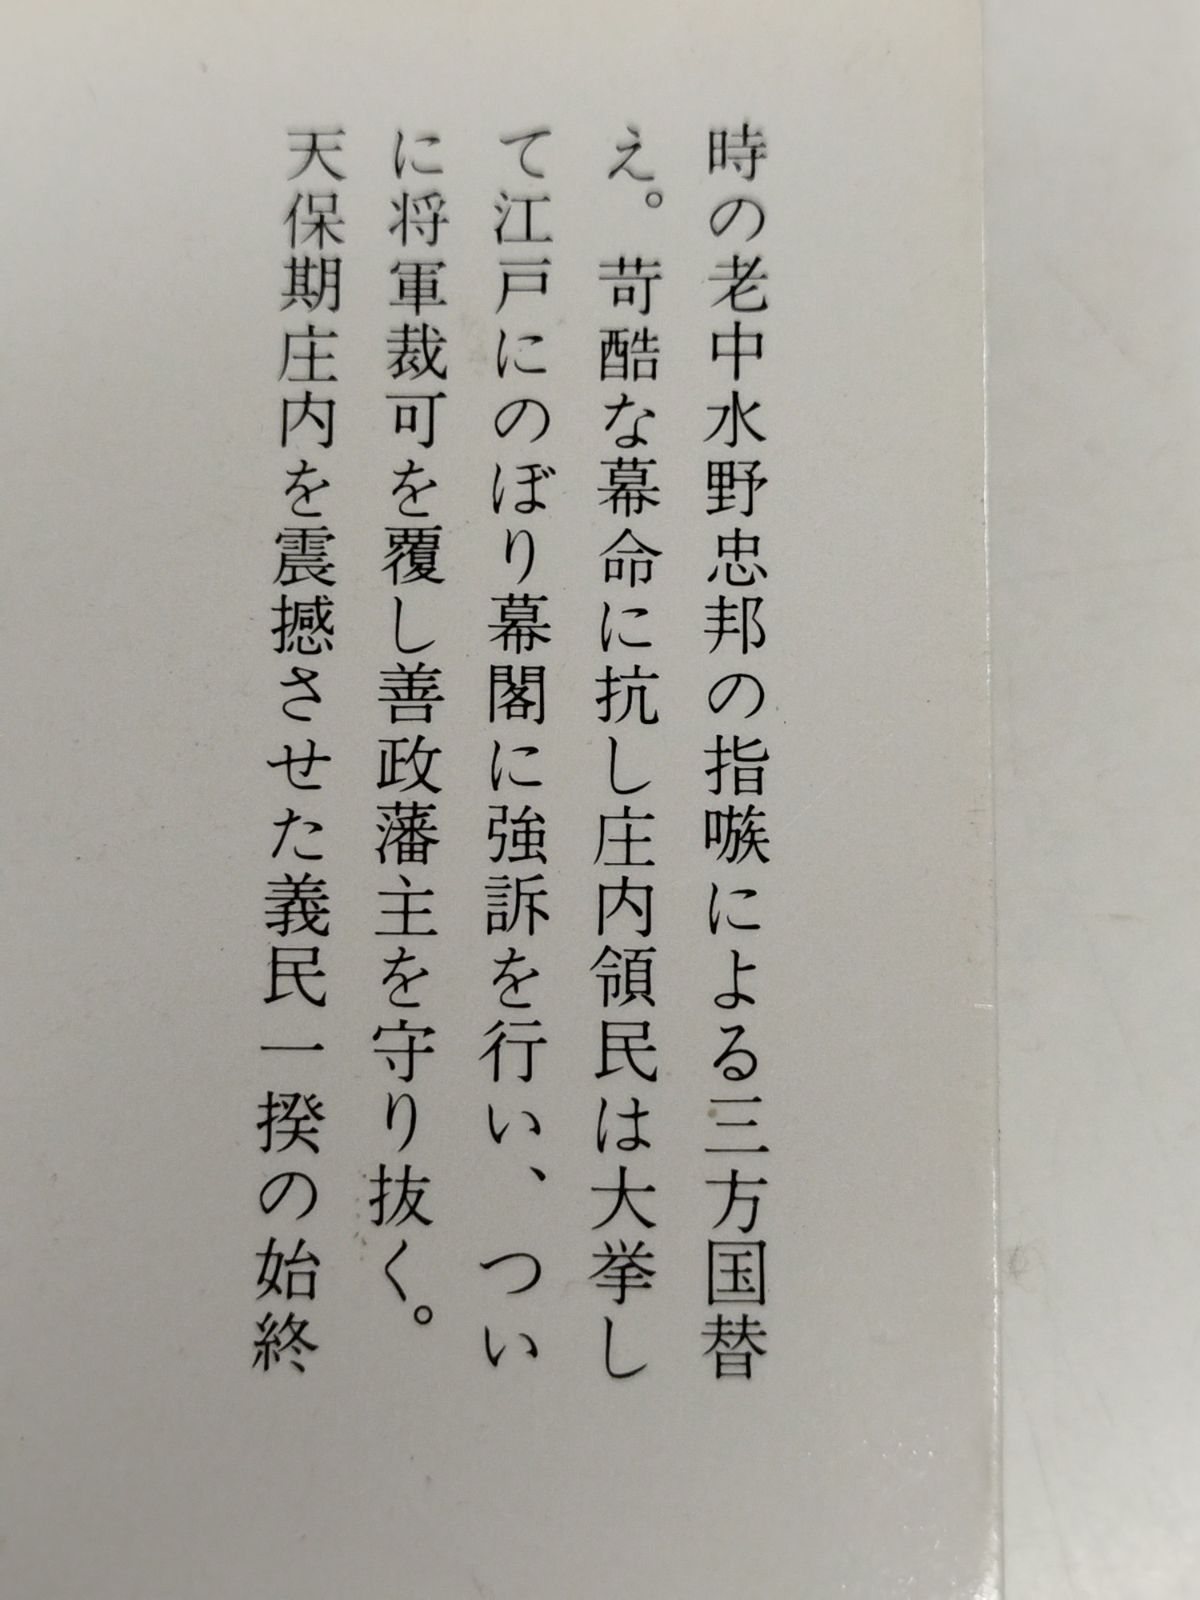 時の老中水野忠邦の指嗾による三方国替
え。苛酷な幕命に抗し庄内領民は大挙し
て江戸にのぼり幕閣に強訴を行い、つい
に将軍裁可を覆し善政藩主を守り抜く。
天保期庄内を震撼させた義民一揆の始終